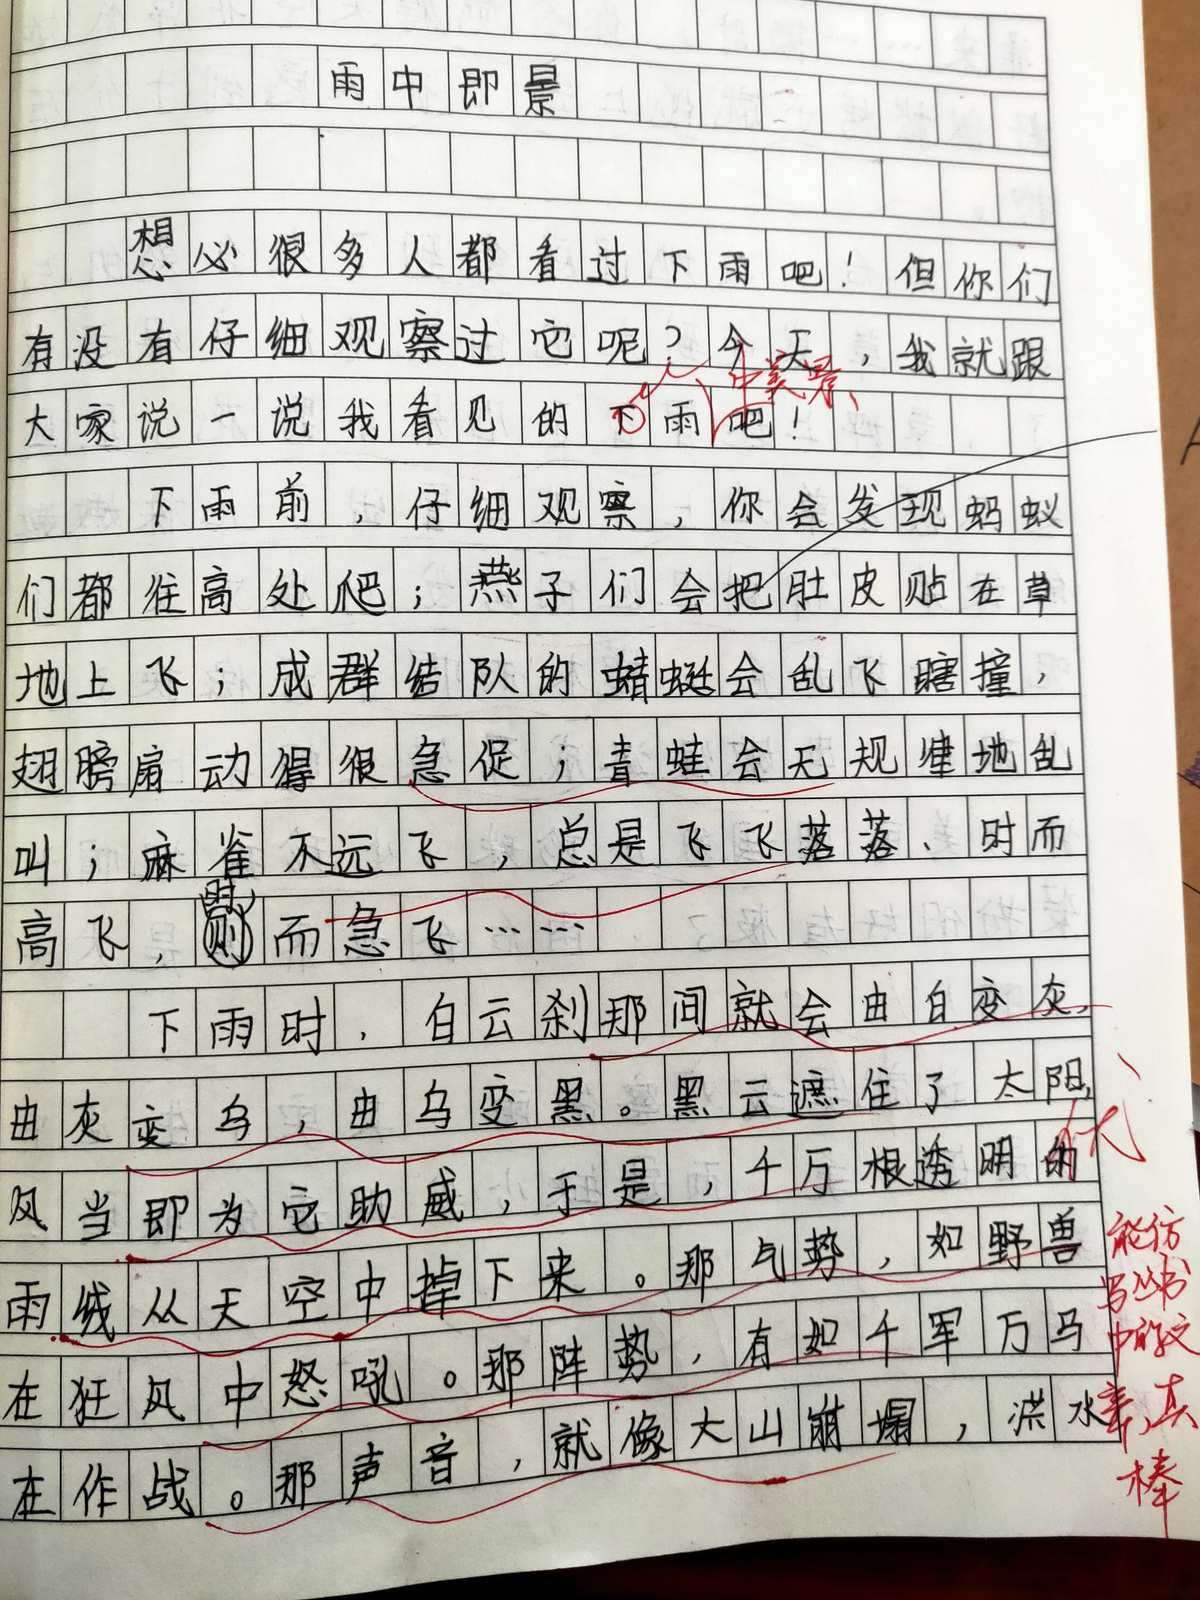 雨中即景
想必很多人都看过下雨吧！但你们
有没有仔细观察过它呢？今天，我就跟
中美景
大家说一说我看见的下雨吧！
下雨前，仔细观察，你会发现蚂蚁
们都往高处爬；燕子们会把肚皮贴在草
地上飞；成群结队的蜻蜓会乱飞瞎撞，
翅膀扇动得很急促；青蛙会无规律地乱
叫；麻雀不远飞，总是飞飞落落、时而
高飞，时而急飞……
下雨时，白云刹那间就会由白变灰，
由灰变乌，由乌变黑。黑云遮住了太阳，
风当即为它助威，于是，千万根透明的
雨线从天空中掉下来。那气势，如野兽
在狂风中怒吼。那阵势，有如千军万马
在作战。那声音，就像大山崩塌，洪水
能仿
写丛书
中的文
章，真
棒